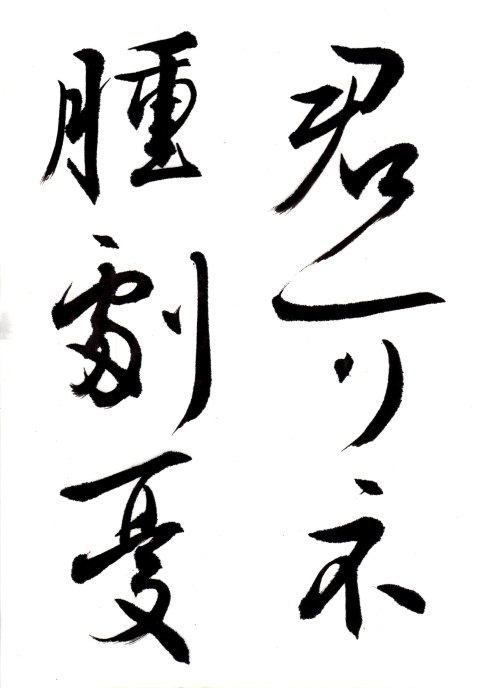 君可不
腫劇憂